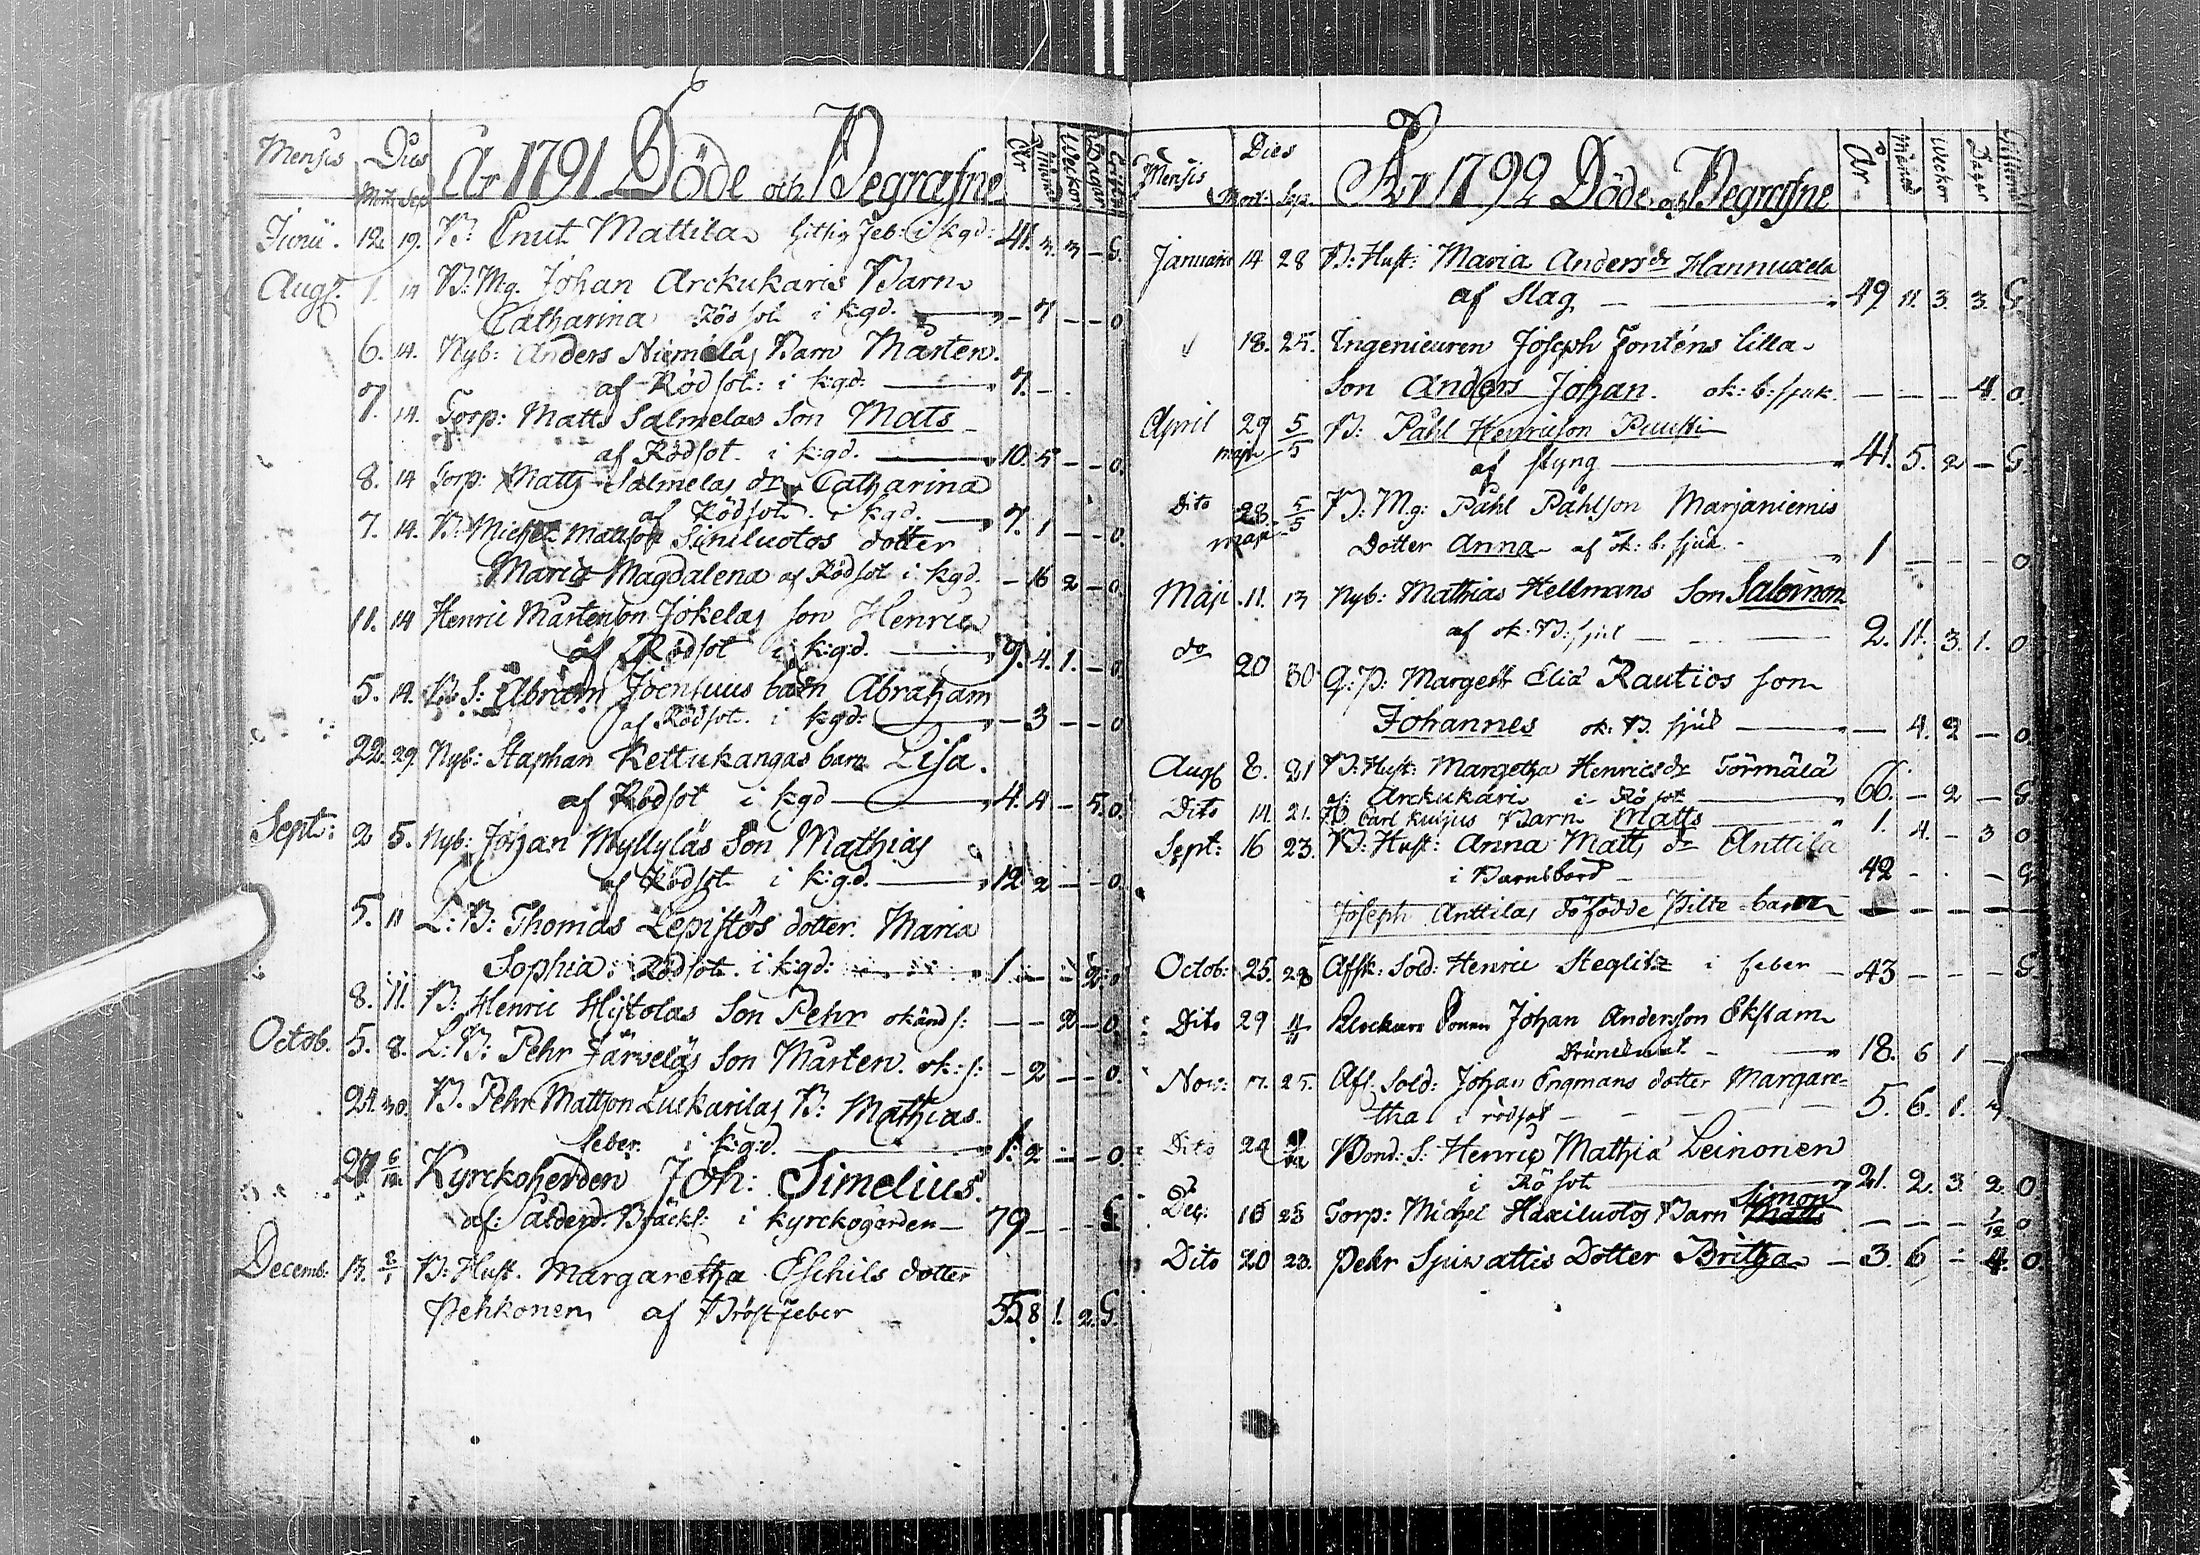 Mensis Dies År 1791 Döde och Begrafne År Månad Weckor Dagar
Mort: Sep:
Junii. 12. 19. B: Cnut Mattila hittig feb: i k:g:d: 41. 3. 3 – G.
Aug: 1. 14 B: Mg. Johan Arckukaris Barn
Catharina Rödsot i k:g:d. – 7 – – o
6. 14. Nyb: Anders Niemeläs Barn Mårten.
af Rödsot: i k:g:d: 7. –
7. 14. Torp: Matts Salmelas Son Mats
af Rödsot i k:g:d. 10. 5 – – o.
8. 14 Torp: Matts Salmelas dr Catharina
af Rödsot i k:g:d. 7. 1 – – o.
7. 14. B: Michel Mattson Siniluotos dotter
Maria Magdalena af Rödsot i k:g:d. – 16 2 – o.
11. 14 Henric Mårtenson Jokelas son Henric
af Rödsot i k:g:d. 9. 4. 1. – o
5. 14. B: S: Abram Joensuus barn Abraham
af Rödsot i k:g:d: – 3 – – o
22. 29. Nyb: Staphan Kettukangas barn Lisa.
af Rödsot i k:g:d 4. 4 – 5. o.
Sept: 2 5. Nyb: Johan Myllyläs Son Mathias
af Rödsot i k:g:d. 12 2 – – o.
5. 11 L: B: Thomas Lepistös dotter Maria
Sophia: Rödsot. i k:g:d: 1. – – 2. o
8. 11. B: Henric Hijtolas Son Pehr okänd s: – – 2 – o
Octob. 5. 8. L: B: Pehr Järveläs Son Mårten. ok: s: – 2 – – o.
24. 30. B. Pehr Mattson Luckarilas B: Mathias.
feber. i k:g:d. 1. 2 – – o.
27 6/12 Kyrckoherden Joh: Simelius.
af: Ålderd: Bräckl: i kyrckogården 79 – – – G
Decemb: 13. 8/1 B: Hust. Margaretha Eschils dotter
Pehkonen af Bröstfeber 55. 8 1. 2. G.
Mensis Dies År 1792 Döde och Begrafne År Månad Weckor Dagar
Mort: Sep:
Januarii 14 28 B: Hust: Maria Andersdr Hannuxela
af Slag 49 11. 3. 3. G.
18. 25. Ingenieuren Joseph Fonténs lilla
son Anders Johan. ok: b: sjuk. – – – 4. o.
April 29 5/5 B: Påhl Henricson Puusti
maji af styng 41. 5. 2 – G.
Dito 28 5/5 B: Mg: Påhl Påhlson Marjaniemis
maji Dotter Anna af ok: b: sjuk 1 – – – o
Maji 11. 13 Nyb: Mathias Hellmans Son Salomon
af ok: B: sjuk 2. 11. 3. 1. o
do 20 30 Margett Eliä Rautios son
Johannes ok: B. sjuk – 4. 2 – o.
Aug: 8. 21 B: Hust: Margetha Henricsdr Törmälä
af: Arckukari i Rösot 66. – 2 – G.
Dito 14. 21. Carl Kuljus Barn Matts 1. 4. – 3 o
Sept: 16 23. B: Hust: Anna Matts dr Anttila
i Barnsbörd 42 – – – G
Joseph Anttilas döfödde Pilte-barn – – – –
Octob: 25. 28 Afsk: Sold: Henric Steglitz i feber – 43 – – – G
Dito 29 4/11 Klockare Sonen Johan Anderson Ekstam
Drunknat 18. 6 1 –
Nov: 17. 25. Afs: Sold: Johan Engmans dotter Margare=
tha i rödsot 5. 6. 1.
Dito 24 Bond: S: Henric Mathiä Leinonen
i Rösot 21. 2. 3. 2. o
Dec: 16 23 Torp: Michel Haxiluotos Barn Simon Matts – – – 1/12 o
Dito 20 23. Pehr Sjuwattis Dotter Britha 3. 6 – 4. o